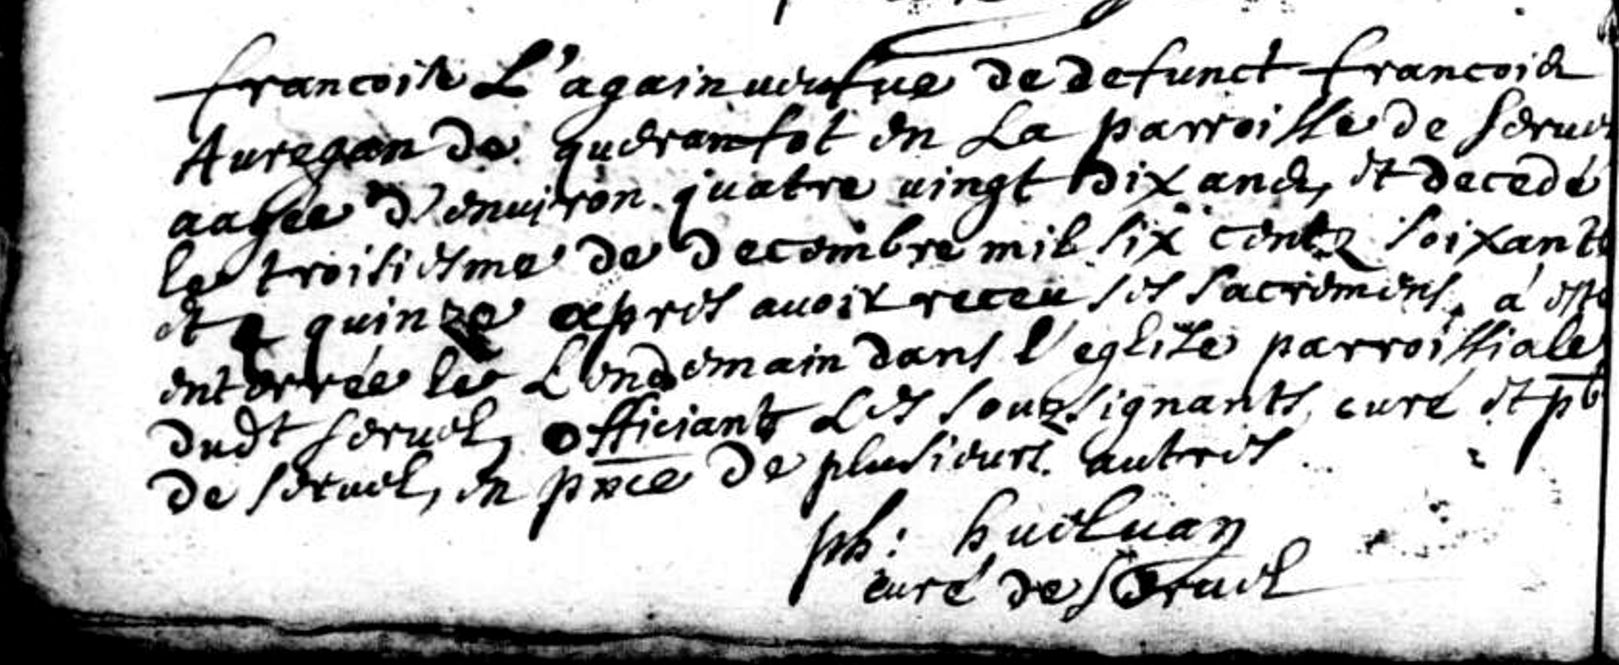 francoise L'again ueufue de defunct francois
Auregan de queranfot en La parroisse de seruel
aagée d'enuiron quatre uingt dix ans, et decedé
le troisiesme de decembre mil six centz soixante
et quinze apres auoir receu ses sacremens, a esté
enterrée le Lendemain dans l'eglise parroissiale
dudt seruel, officiants Les souzsignants, curé et pb
de seruel, en pnce de plusieurs autres
ph: hueluan
curé de seruel